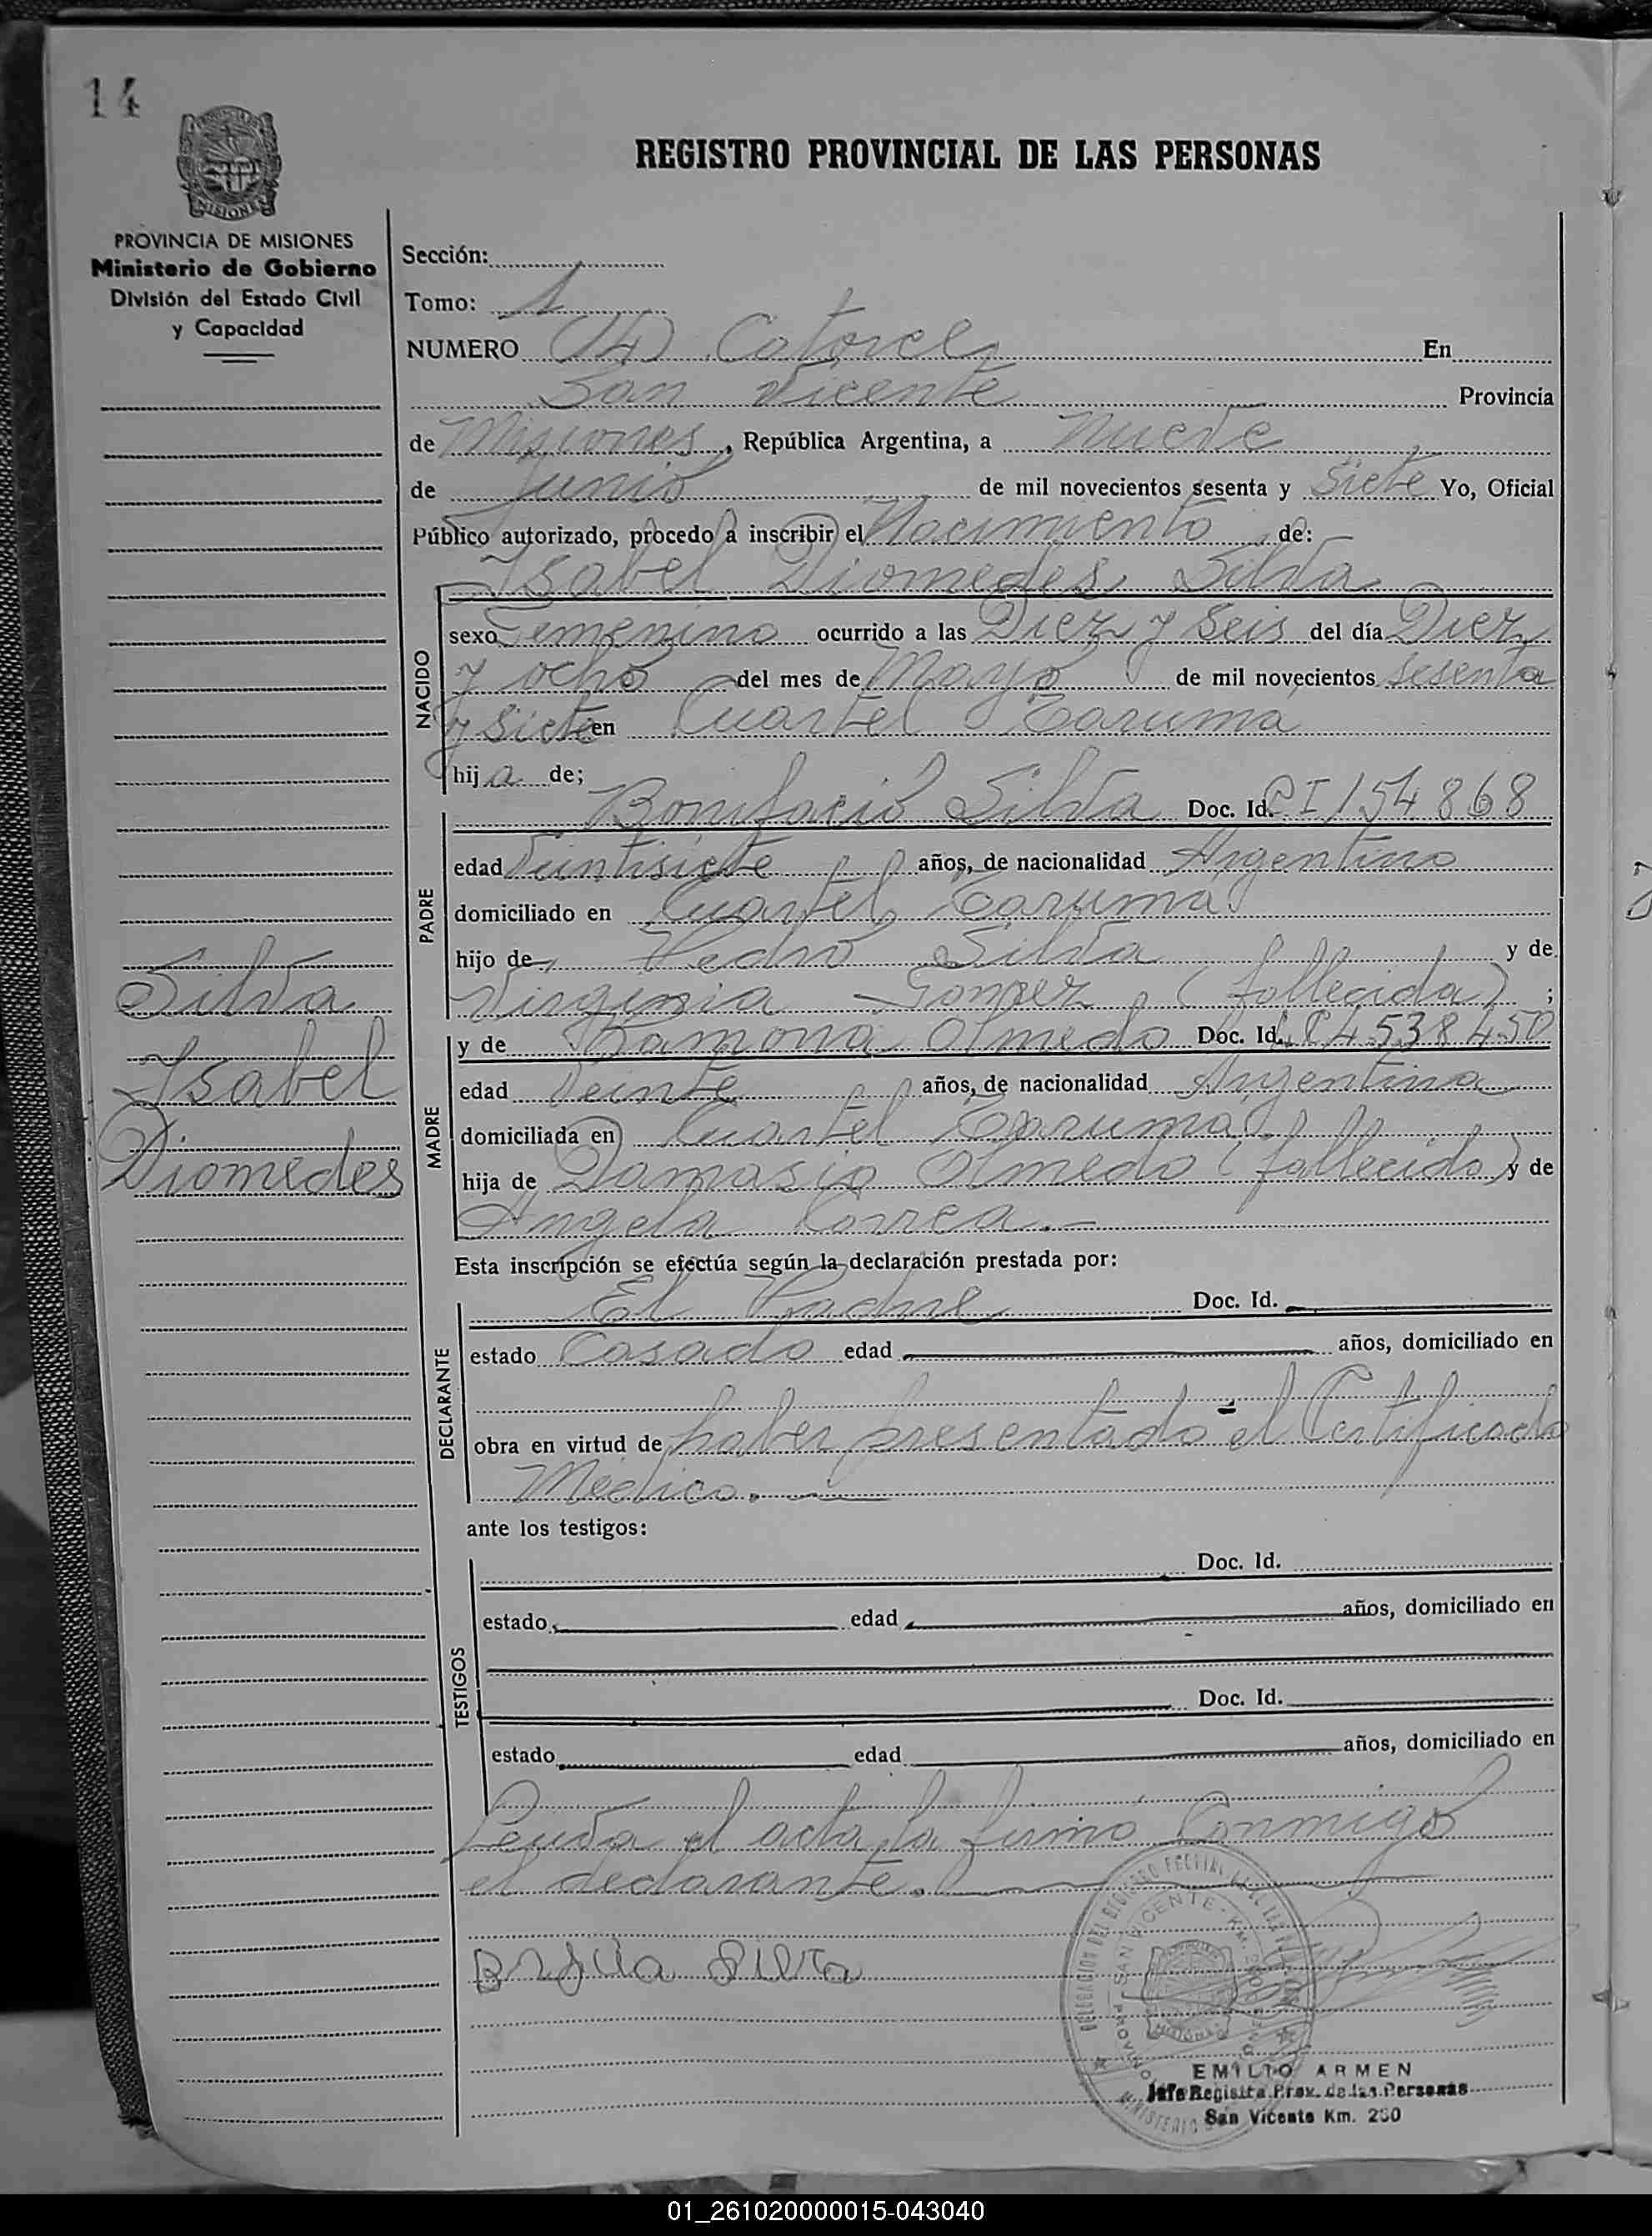 14
REGISTRO PROVINCIAL DE LAS PERSONAS
MISIONES
PROVINCIA DE MISIONES
Ministerio de Gobierno
División del Estado Civil
y Capacidad
Silva
Isabel
Diomedes
Sección:
Tomo: 1
NUMERO (14) Catorce En
San Vicente Provincia
de Misiones, República Argentina, a Nueve
de Junio de mil novecientos sesenta y Siete Yo, Oficial
Público autorizado, procedo a inscribir el Nacimiento de:
Isabel Diomedes Silva
NACIDO
sexo Femenino ocurrido a las Diez y Seis del día Diez
y ocho del mes de Mayo de mil novecientos sesenta
y Siete en Cuartel Taruma
hija de;
PADRE
Bonifacio Silva Doc. Id. CI 154868
edad Veintisiete años, de nacionalidad Argentino
domiciliado en Cuartel Taruma
hijo de Pedro Silva y de
Virginia Gomez (fallecida) ;
MADRE
y de Ramona Olmedo Doc. Id. LC 4538450
edad Veinte años, de nacionalidad Argentina
domiciliada en Cuartel Taruma
hija de Damasio Olmedo (fallecido) y de
Angela Correa.-
Esta inscripción se efectúa según la declaración prestada por:
DECLARANTE
El Padre Doc. Id.
estado Casado edad años, domiciliado en
obra en virtud de haber presentado el Certificado
Médico.
ante los testigos:
TESTIGOS
Doc. Id.
estado edad años, domiciliado en
Doc. Id.
estado edad años, domiciliado en
Leída el acta, la firmó Conmigo
el declarante.
Silva
EMILIO ARMEN
Jefe Registro Prov. de las Personas
San Vicente Km. 260
01_261020000015-043040